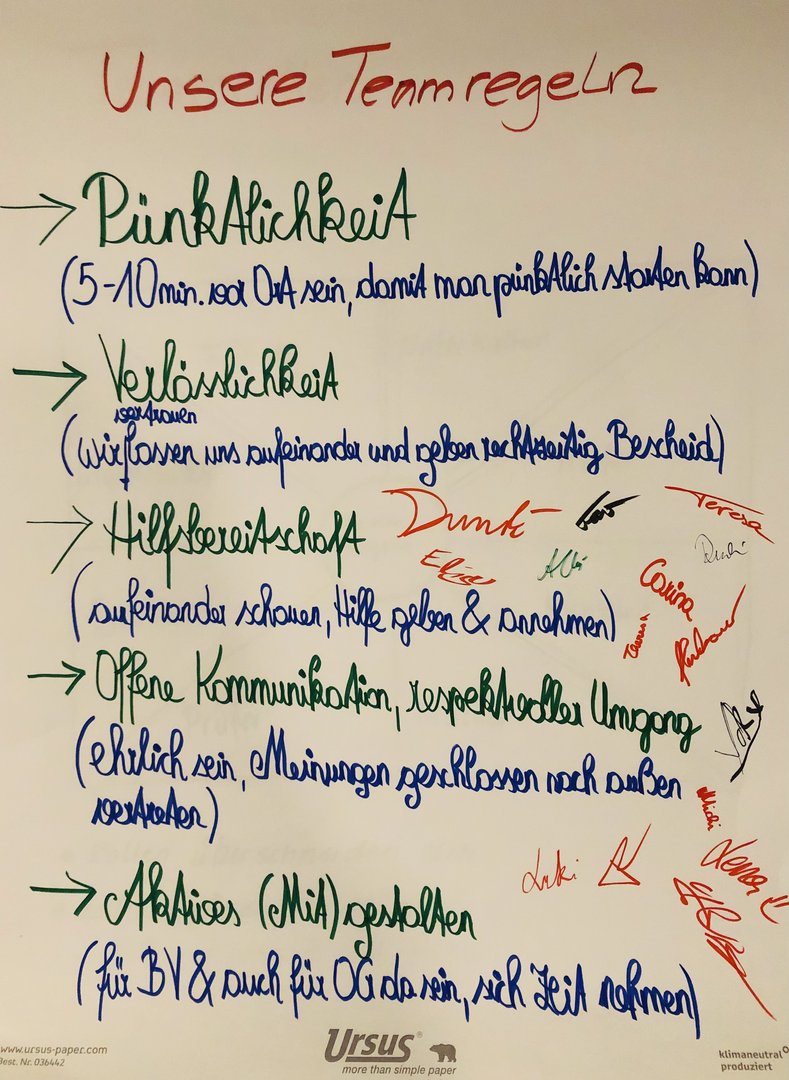 Unsere Teamregeln
→ Pünktlichkeit
(5-10min. vor Ort sein, damit man pünktlich starten kann)
→ Verlässlichkeit
vertrauen
(wir lassen uns aufeinander und geben rechtzeitig Bescheid)
→ Hilfsbereitschaft
Teresa
(aufeinander schauen, Hilfe geben & annehmen)
Carina
→ Offene Kommunikation, respektvoller Umgang
(ehrlich sein, Meinungen geschlossen nach außen
vertreten)
Michi
Luki
Lena
→ Aktives (Mit)gestalten
(für BV & auch für OG da sein, sich Zeit nehmen)
www.ursus-paper.com
Best. Nr. 036442
Ursus®
more than simple paper
klimaneutral
produziert